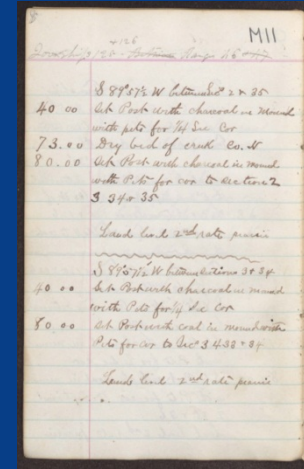 8
M11
+126
Township 125 - Range 46 + 47
S 89°57½' W between Secs 2 & 35
40 00 Set Post with charcoal in Mound
with pits for ¼ Sec Cor
73.00 Dry bed of creek Co. N
80.00 Set Post with charcoal in mound
with Pits for cor to section 2
3 34 & 35
Land level 2nd rate prairie
S 89°57½' W between sections 3 & 34
40 00 Set Post with charcoal in mound
with Pits for ¼ Sec Cor
80 00 Set Post with coal in mound with
Pits for cor to Secs 3 4 33 & 34
Land level 2nd rate prairie